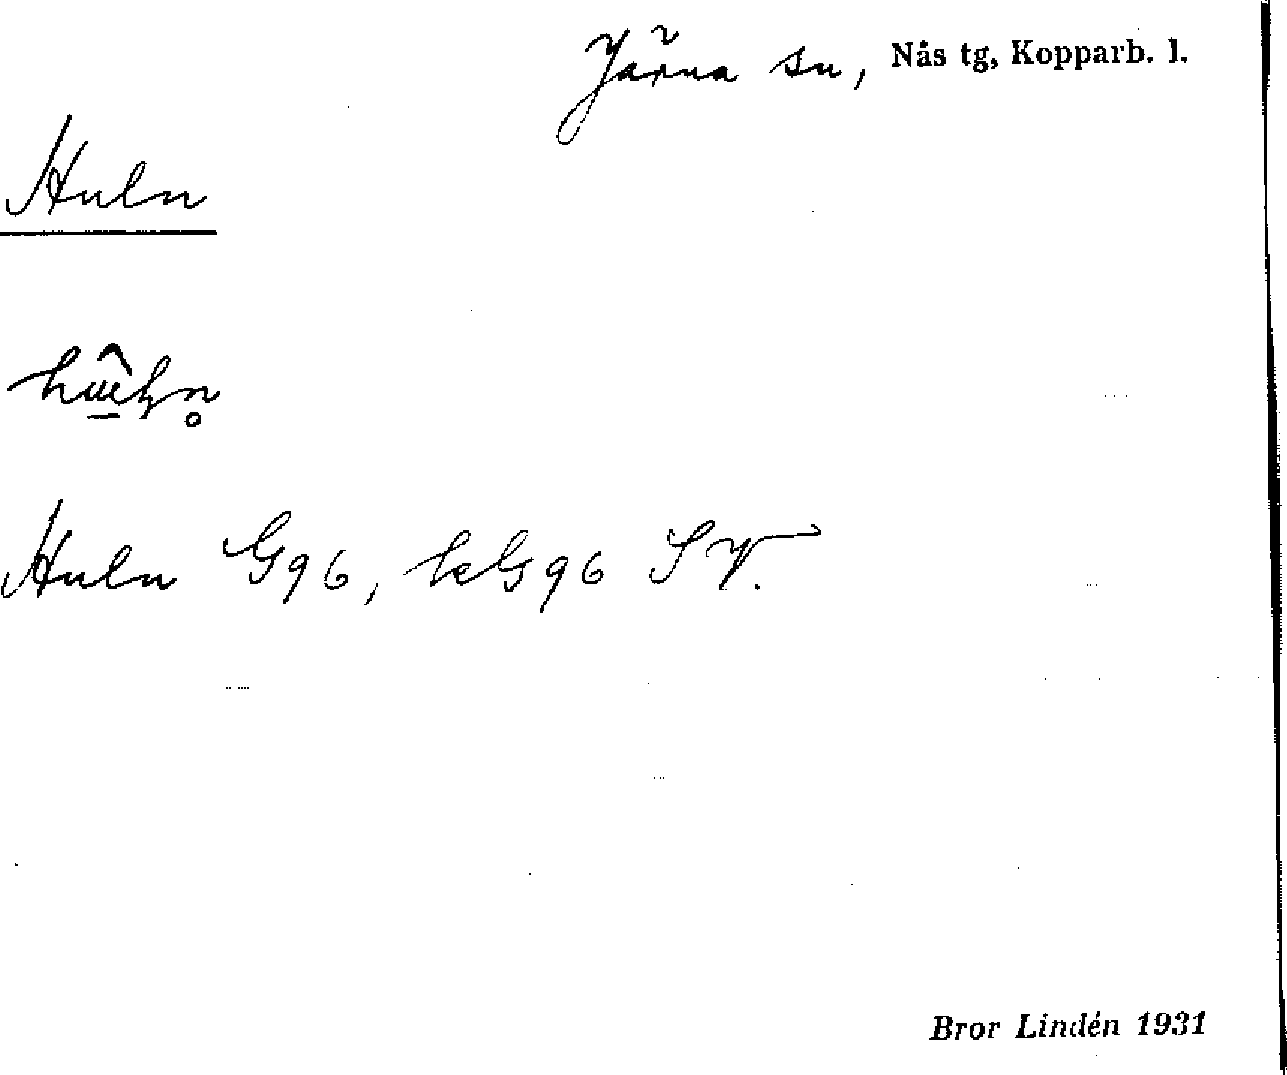 Järna sn, Nås tg, Kopparb. l.
Huln
Huln G96, hG96 SV.
Bror Lindén 1931